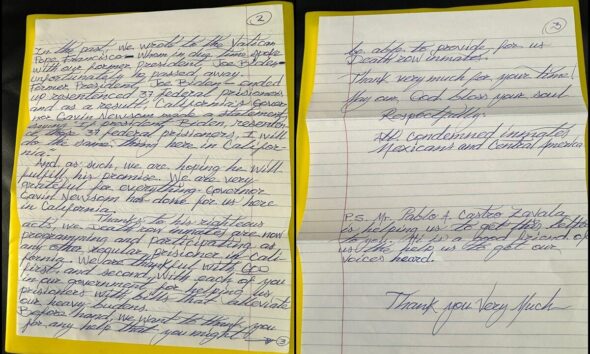 2
In the past, we wrote to the Vatican
Pope Francisco - Whom in due time spoke
with our former president Joe Biden -
unfortunately he passed away.
Former President, Joe Biden - ended
up resentenced 37 federal prisioners
and as a result, California's Gover-
nor Gavin Newsom made a statement,
president Biden, resenten
37 federal prisioners, I will
do the same thing here in Califor-
nia.
And as such, we are hoping he will
fulfill his promise. We are very
grateful for everything Governor
Gavin Newsom has done for us here
in California.
Thanks to his righteous
acts, we Death row inmates are now
programming and participating as
any other regular prisioner in Cali-
fornia. We are thankful with GOD
first, and second, with each of you
in our government for helping us
prisioners with bills that alleviate
our heavy burdens.
Before hand, we want to thank you
for any help that you might
3
3
be able to provide for us
Death row inmates.
Thank very much for your time!
May our God bless your soul
Respectfully:
All condemned inmates
Mexicans and Central America
P.S. Mr. Pablo A. Castro Zavala
is helping us to get this letter
to you. He is a good friend of
us this help us to get our
voices heard.
Thank you Very Much